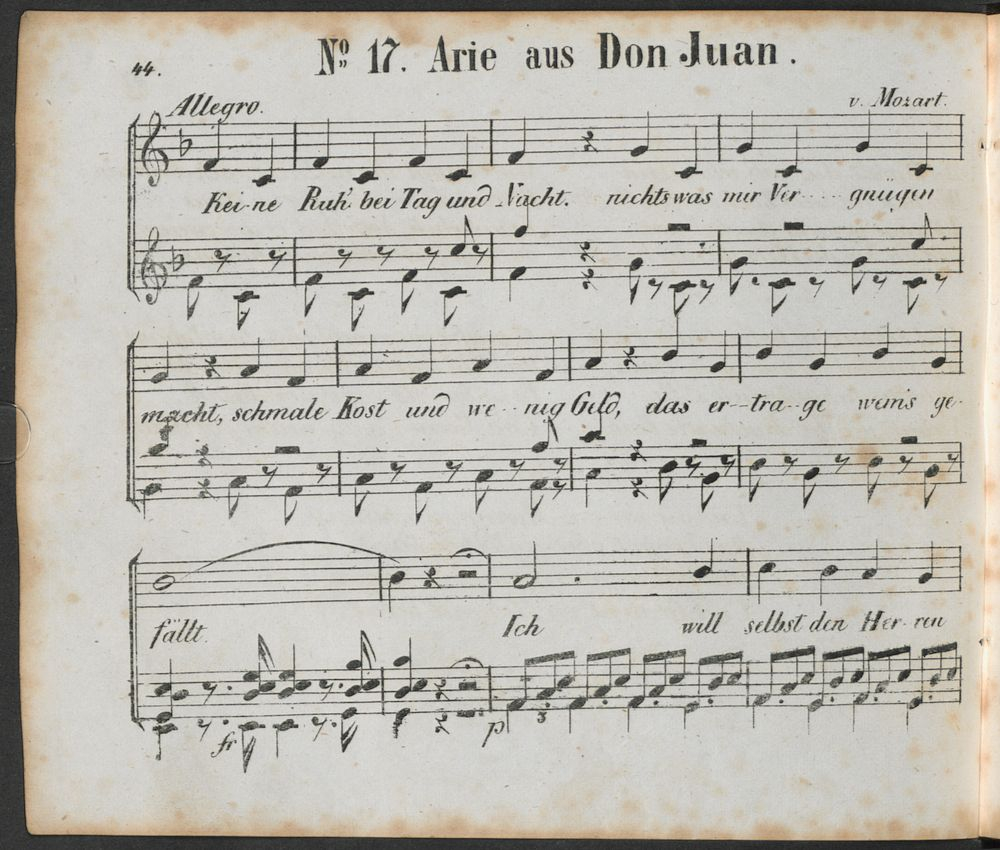 44.
No 17. Arie aus Don Juan.
Allegro.
v. Mozart.
Kei-ne Ruh' bei Tag und Nacht. nichts was mir Ver---- gnügen
macht, schmale Kost und we--nig Geld, das er--tra--ge wems ge-
fällt. Ich will selbst den Her-ren
fr p 3